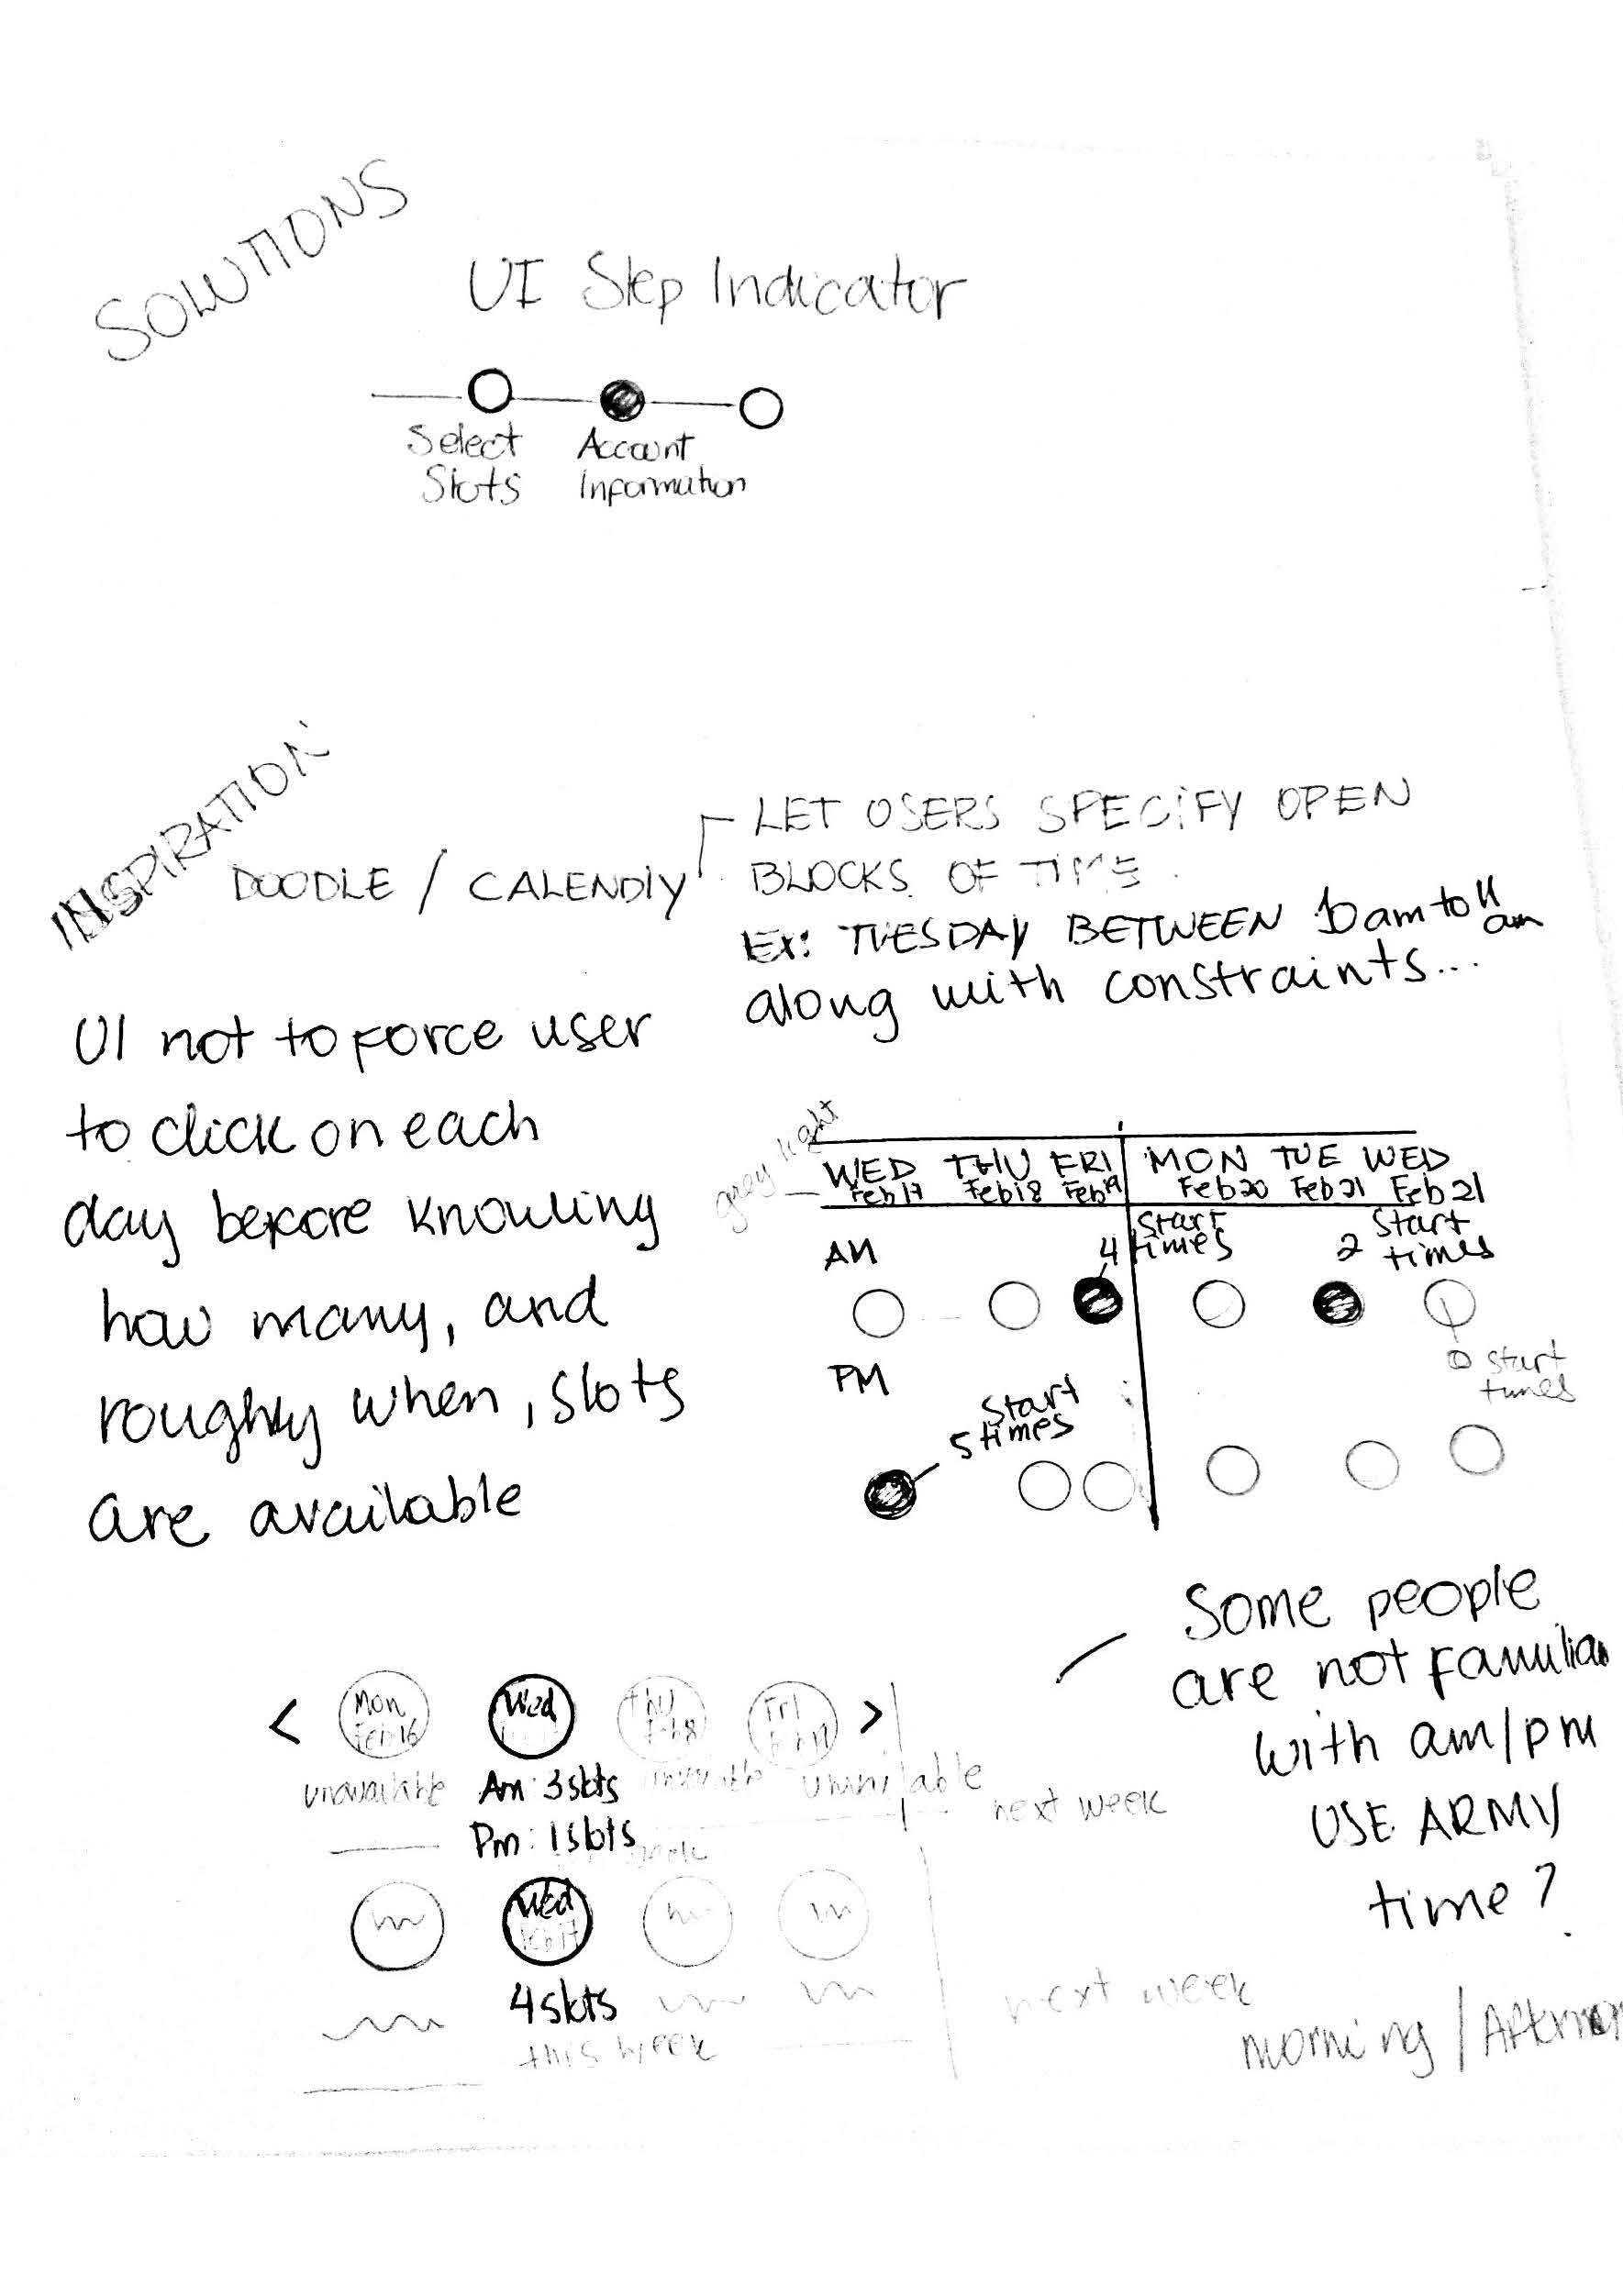 SOLUTIONS
UI Step Indicator
Select
Slots
Account
Information
INSPIRATION
DOODLE / CALENDLY
LET USERS SPECIFY OPEN
BLOCKS OF TIME.
EX: TUESDAY BETWEEN 10 am to 11 am
along with constraints...
UI not to force user
to click on each
day before knowing
how many, and
roughly when, slots
are available
grey light
WED THU FRI MON TUE WED
Feb 17 Feb 18 Feb 19 Feb 20 Feb 21 Feb 21
AM
4 start times
2 start times
0 start times
PM
5 start times
Some people
are not familiar
with am/pm
USE ARMY
time?
< Mon Wed Thu Fri >
Feb 16
unavailable
Am: 3 slots
unavailable
Pm: 1 slots
next week
Wed
Feb 17
4 slots
this week
next week
morning / Afternoon